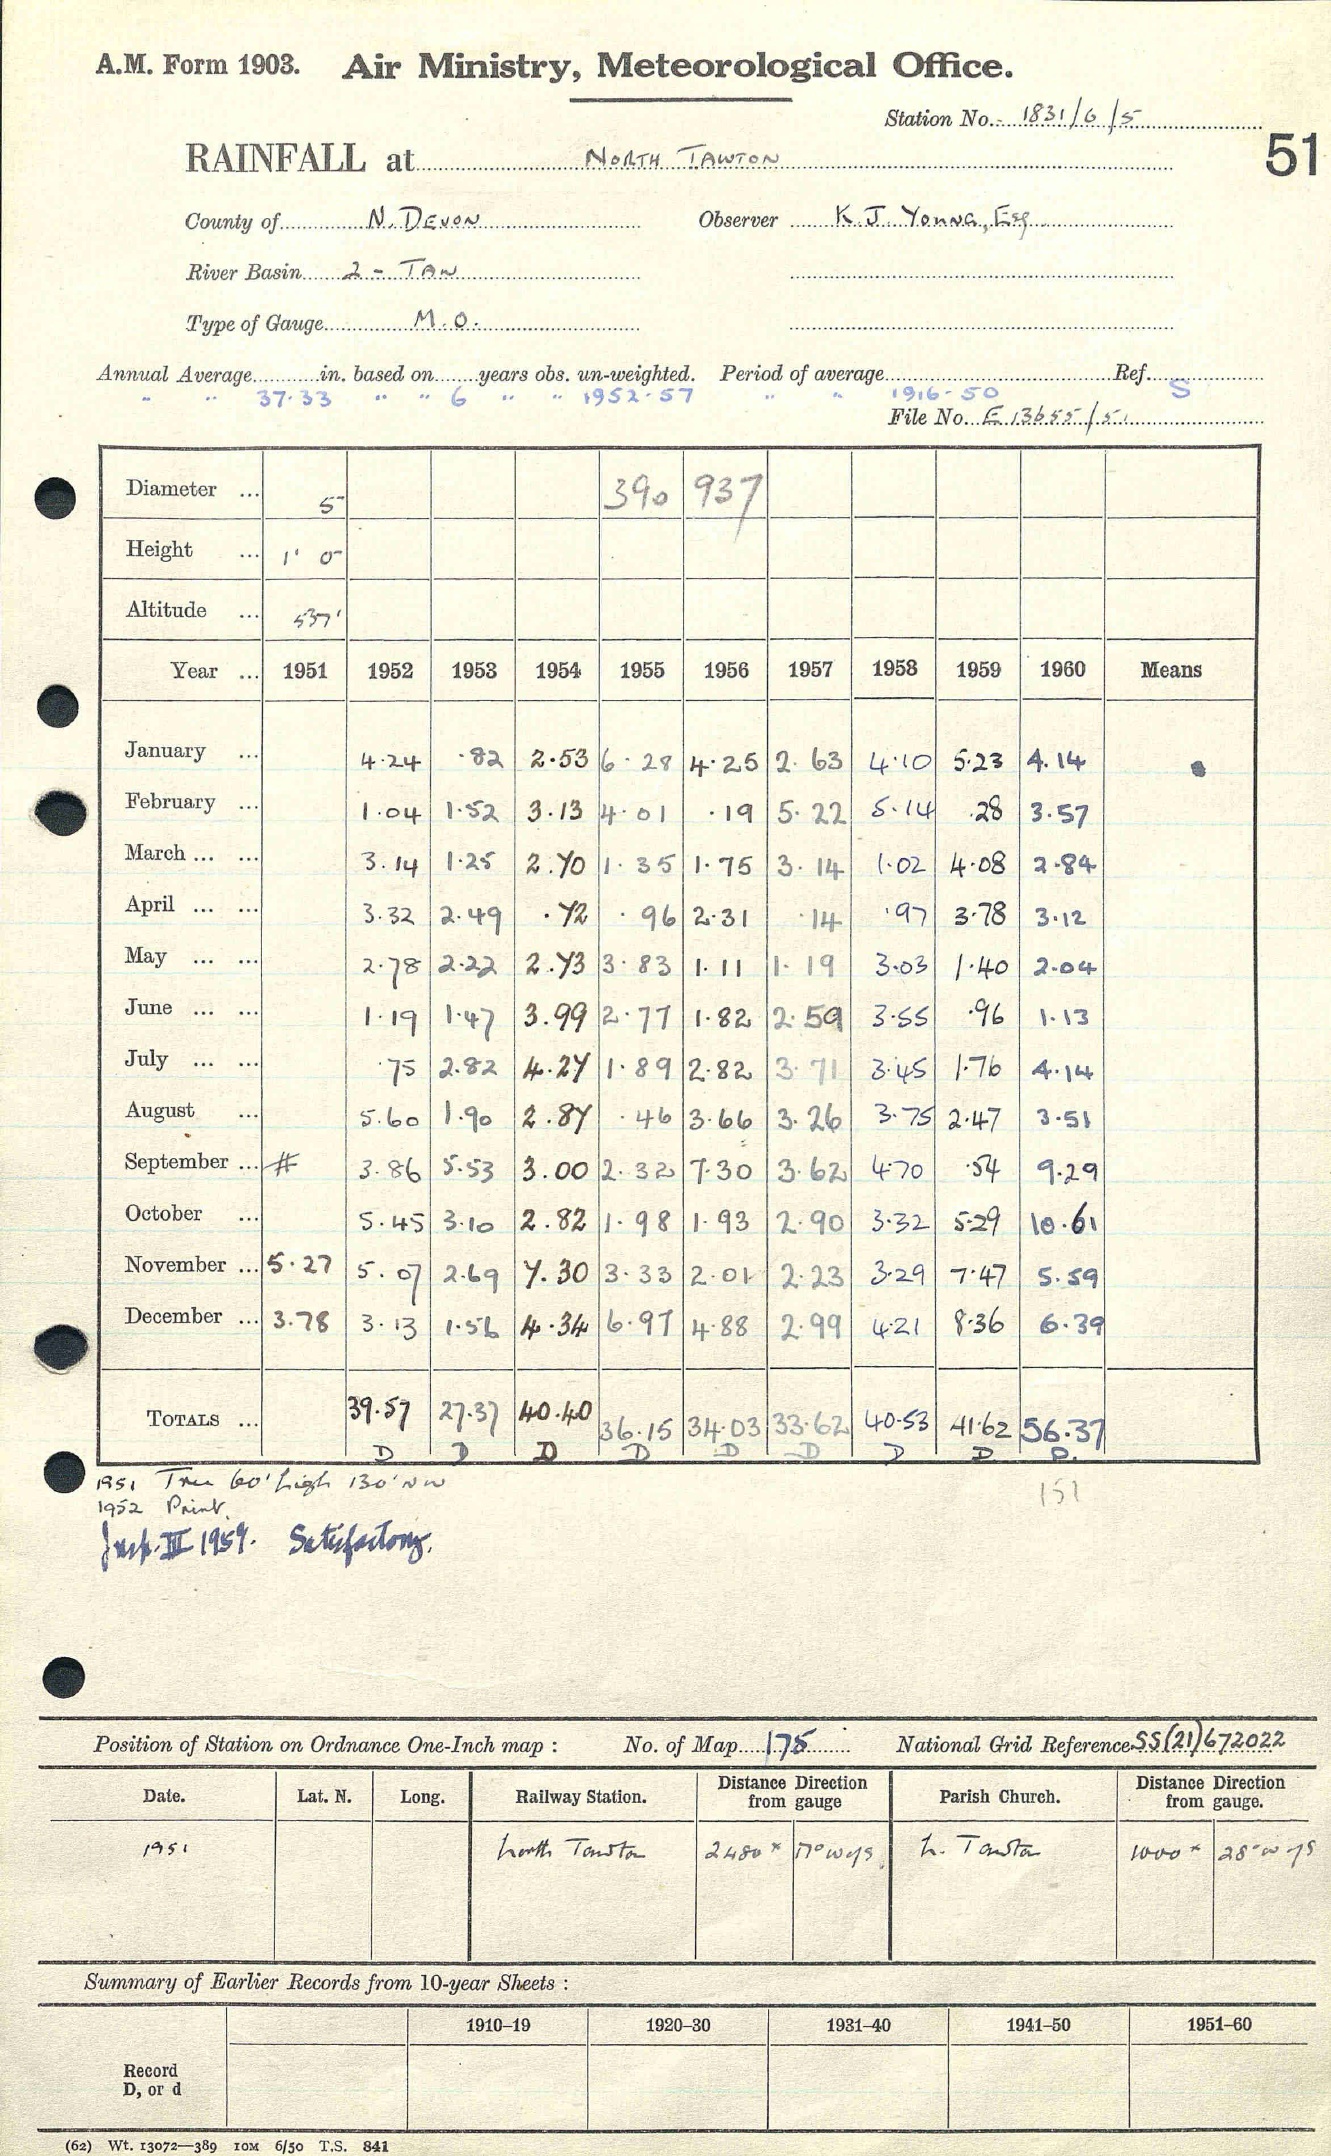 A.M. Form 1903. Air Ministry, Meteorological Office.
Station No. 1831/6/5
51
RAINFALL at NORTH TAWTON
County of N. DEVON Observer K. J. YOUNG, Esq.
River Basin 2 - TAW
Type of Gauge M.O.
Annual Average in. based on years obs. un-weighted. Period of average Ref.
" " 37.33 " " 6 " " 1952-57 " " 1916-50 S
File No. E 13655/51
Diameter ... 5 390 937
Height ... 1' 0
Altitude ... 537'
Year ... 1951 1952 1953 1954 1955 1956 1957 1958 1959 1960 Means
January ... 4.24 .82 2.53 6.28 4.25 2.63 4.10 5.23 4.14
February ... 1.04 1.52 3.13 4.01 .19 5.22 5.14 .28 3.57
March ... ... 3.14 1.25 2.70 1.35 1.75 3.14 1.02 4.08 2.84
April ... ... 3.32 2.49 .72 .96 2.31 .14 .97 3.78 3.12
May ... ... 2.78 2.22 2.73 3.83 1.11 1.19 3.03 1.40 2.04
June ... ... 1.19 1.47 3.99 2.77 1.82 2.59 3.55 .96 1.13
July ... ... .75 2.82 4.27 1.89 2.82 3.71 3.45 1.76 4.14
August ... 5.60 1.90 2.87 .46 3.66 3.26 3.75 2.47 3.51
September ... # 3.86 5.53 3.00 2.32 7.30 3.62 4.70 .54 9.29
October ... 5.45 3.10 2.82 1.98 1.93 2.90 3.32 5.29 10.61
November ... 5.27 5.07 2.69 7.30 3.33 2.01 2.23 3.29 7.47 5.59
December ... 3.78 3.13 1.56 4.34 6.97 4.88 2.99 4.21 8.36 6.39
TOTALS ... 39.57 27.37 40.40 36.15 34.03 33.62 40.53 41.62 56.37
D D D D D D D D D.
1951 Tree 60' high 130' NW
151
1952 Print.
Insp. III 1959. Satisfactory.
Position of Station on Ordnance One-Inch map : No. of Map 175 National Grid Reference SS(21)672022
Date. Lat. N. Long. Railway Station. Distance Direction from gauge Parish Church. Distance Direction from gauge.
1951 North Tawton 2480 N. Tawton 1000
Summary of Earlier Records from 10-year Sheets :
1910–19 1920–30 1931–40 1941–50 1951–60
Record
D, or d
(62) Wt. 13072—389 10M 6/50 T.S. 841